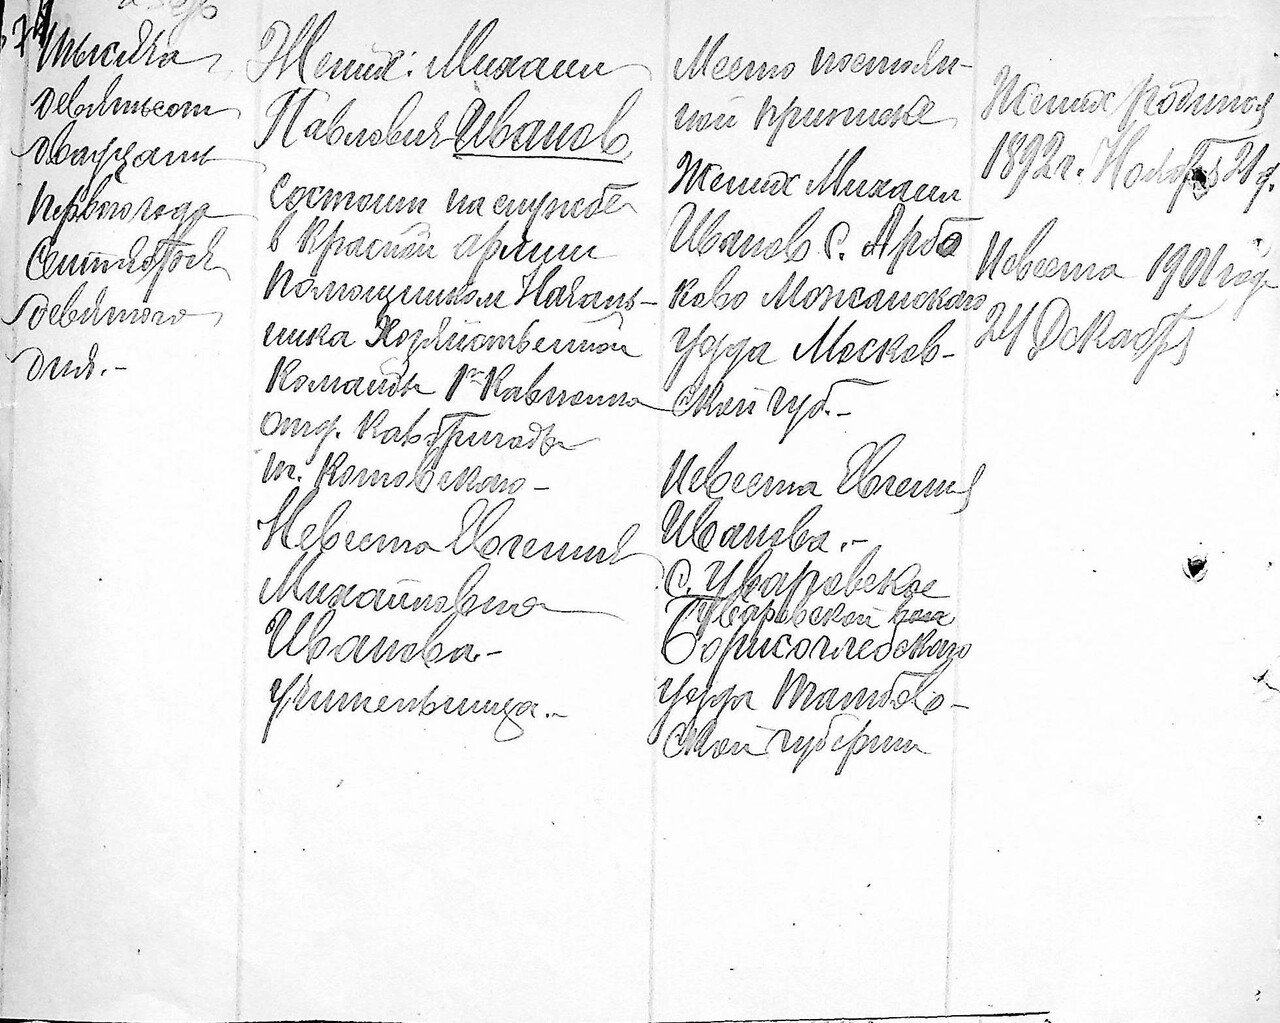 74
Тысяча
девятьсот
двадцать
первого года
Сентября
девятого
дня.-
Жених: Михаил
Павлович Иванов
состоит на службе
в Красной армии
Помощником Началь-
ника Хозяйственной
Команды 1го Кавполка
отд. Кавбригады
т. Котовского-
Невеста Евгения
Михайловна
Иванова-
учительница.-
Место постоян-
ной приписке
Жених Михаил
Иванов с. Арба
ково Можайского
уезда Москов-
ской губ.-
Невеста Евгения
Иванова.-
с. Уваровское
Уваровской вол
Борисоглебского
уезда Тамбов-
ской губернии
Жених родился
1892г. Ноября 21 д.
Невеста 1901 год
24 Декабря